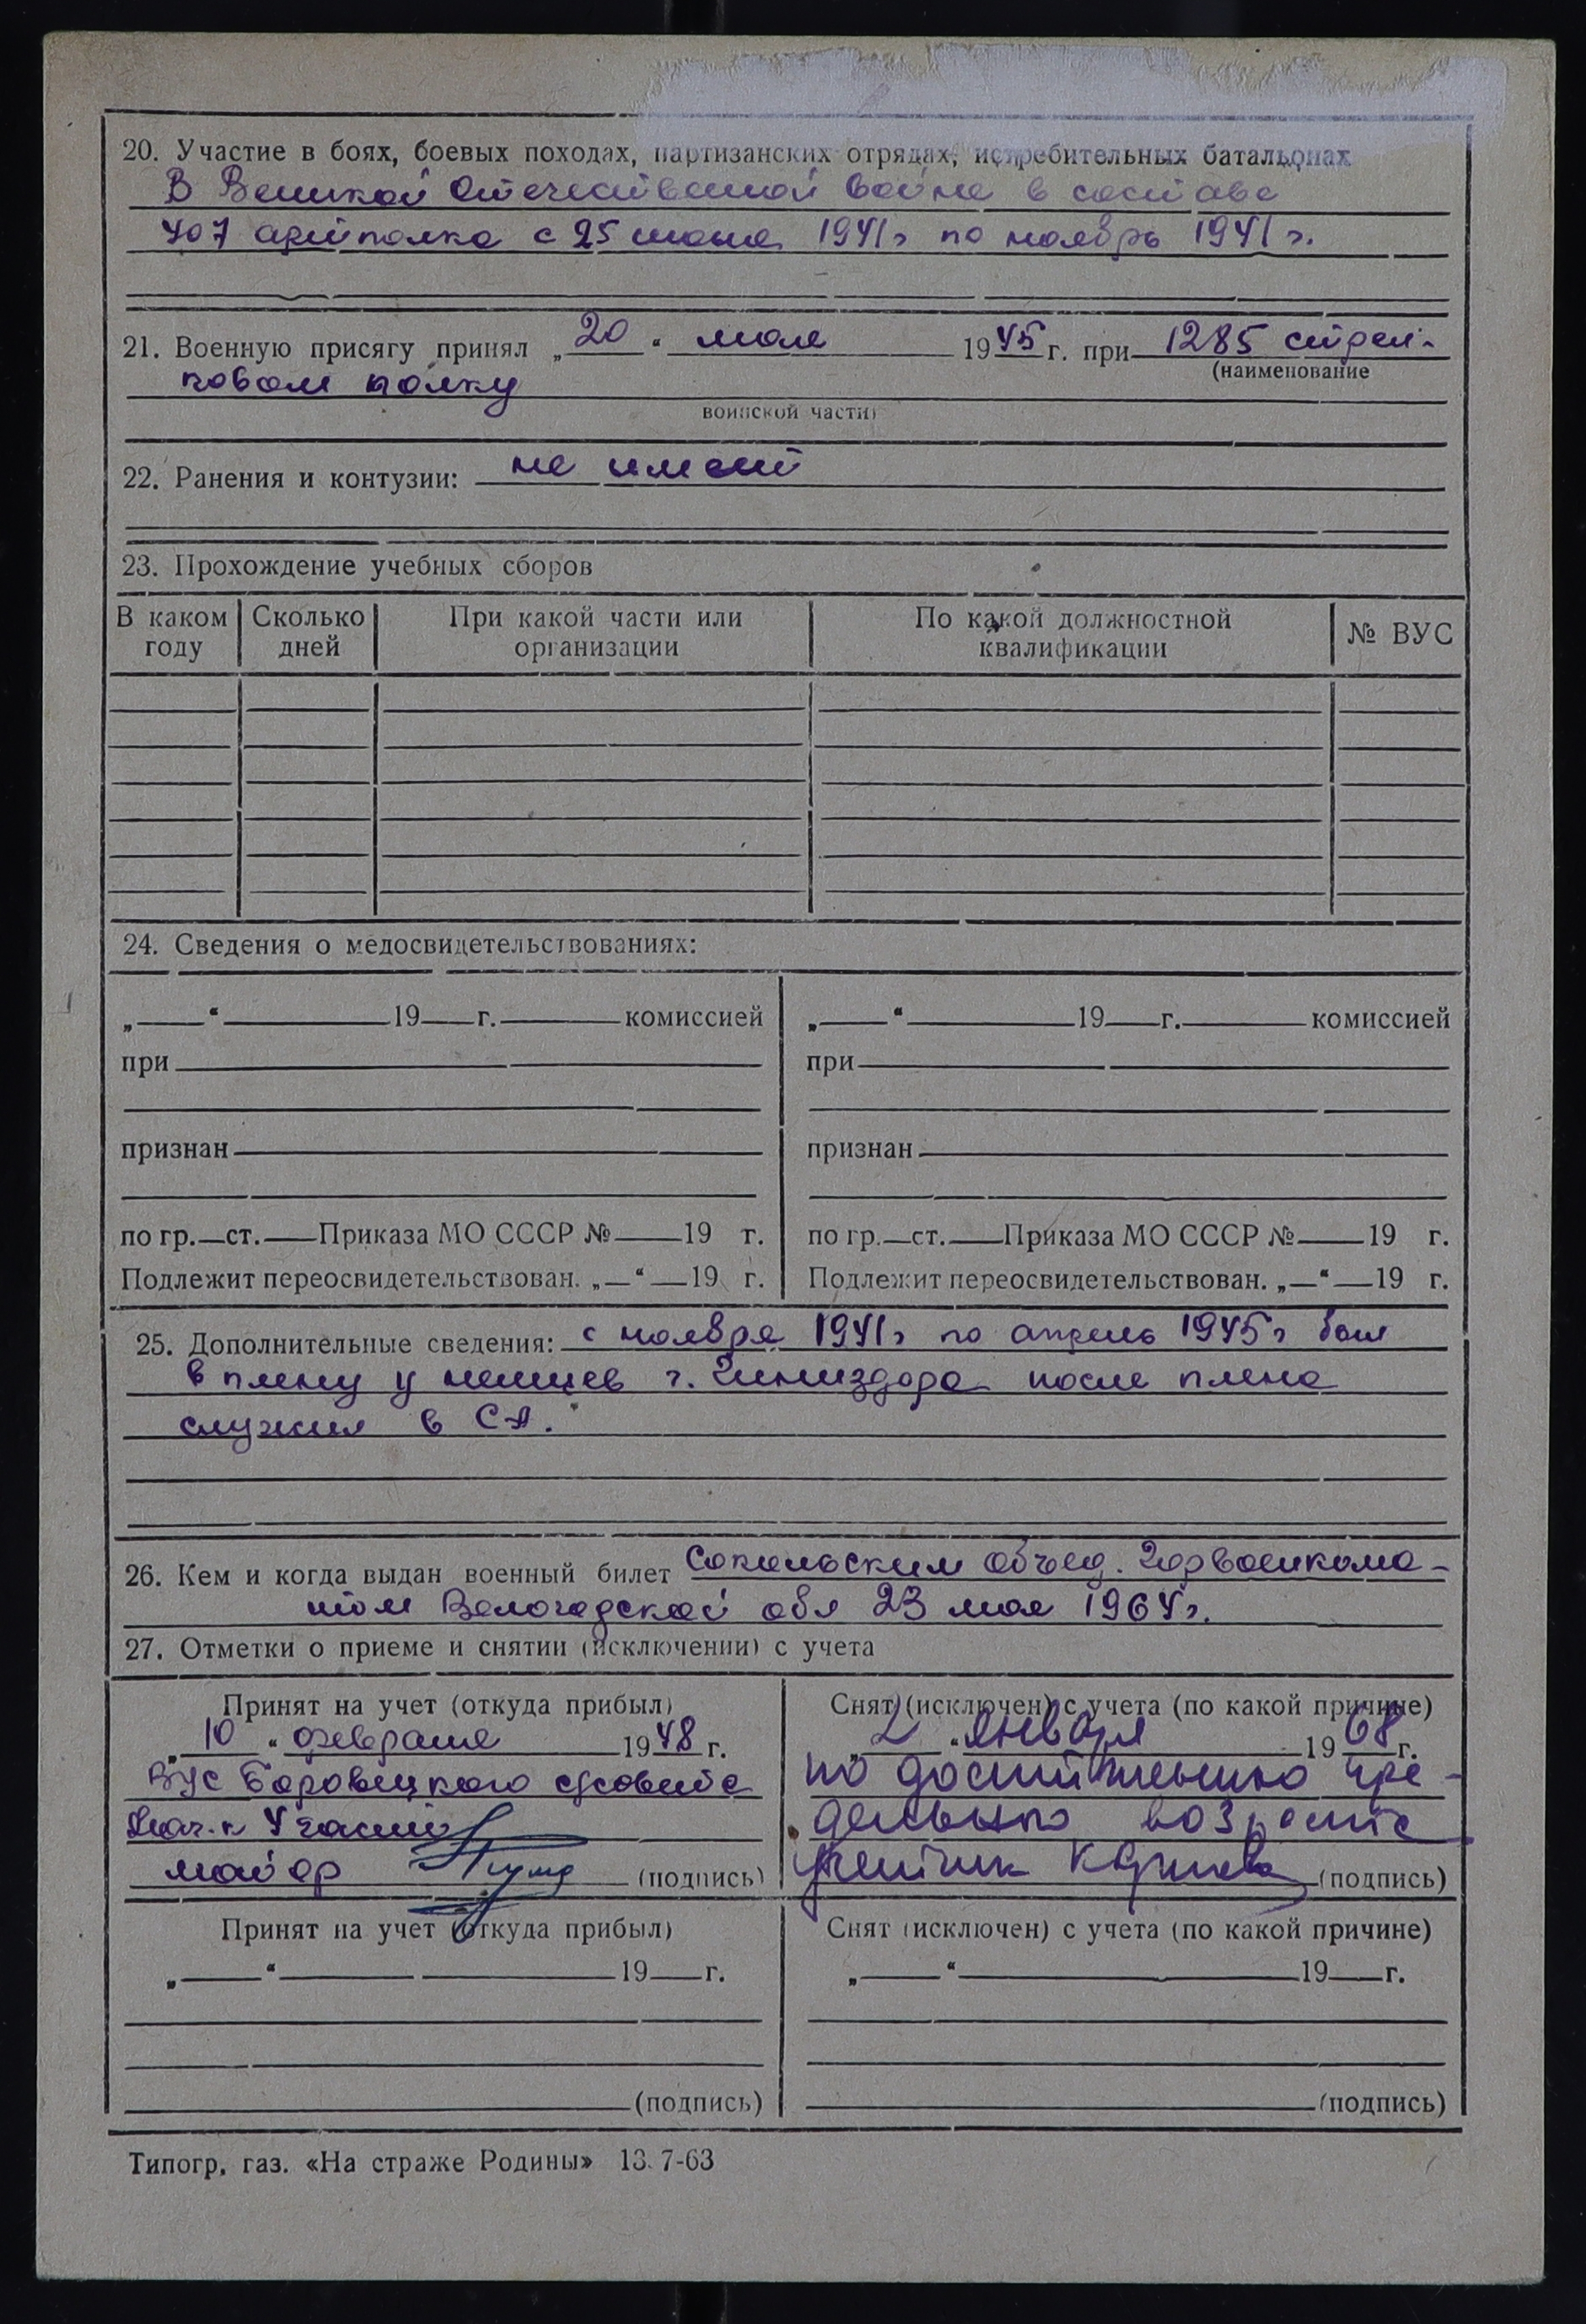 20. Участие в боях, боевых походах, партизанских отрядах, истребительных батальонах
В Великой Отечественной войне в составе
407 артполка с 25 июня 1941г по ноябрь 1941г.
21. Военную присягу принял „20“ мая 1945 г. при 1285 стрел-
(наименование
ковом полку
воинской части)
22. Ранения и контузии: не имеет
23. Прохождение учебных сборов
В каком году Сколько дней При какой части или организации По какой должностной квалификации № ВУС
24. Сведения о медосвидетельствованиях:
„ “ 19 г. комиссией „ “ 19 г. комиссией
при при
признан признан
по гр. ст. Приказа МО СССР № 19 г. по гр. ст. Приказа МО СССР № 19 г.
Подлежит переосвидетельствован. „ “ 19 г. Подлежит переосвидетельствован. „ “ 19 г.
25. Дополнительные сведения: с ноября 1941г по апрель 1945г был
в плену у немцев г. после плена
служил в СА.
26. Кем и когда выдан военный билет Сокольским объед. Горвоенкома-
том Вологодской обл 23 мая 1964г.
27. Отметки о приеме и снятии (исключении) с учета
Принят на учет (откуда прибыл) Снят (исключен) с учета (по какой причине)
„10“ февраля 1948 г. „2“ января 1968 г.
ВУС Боровецкого с/совета по достижению пре-
Нач. 4 части дельного возраста
майор (подпись) (подпись)
Принят на учет (откуда прибыл) Снят (исключен) с учета (по какой причине)
„ “ 19 г. „ “ 19 г.
(подпись) (подпись)
Типогр. газ. «На страже Родины» 13.7-63